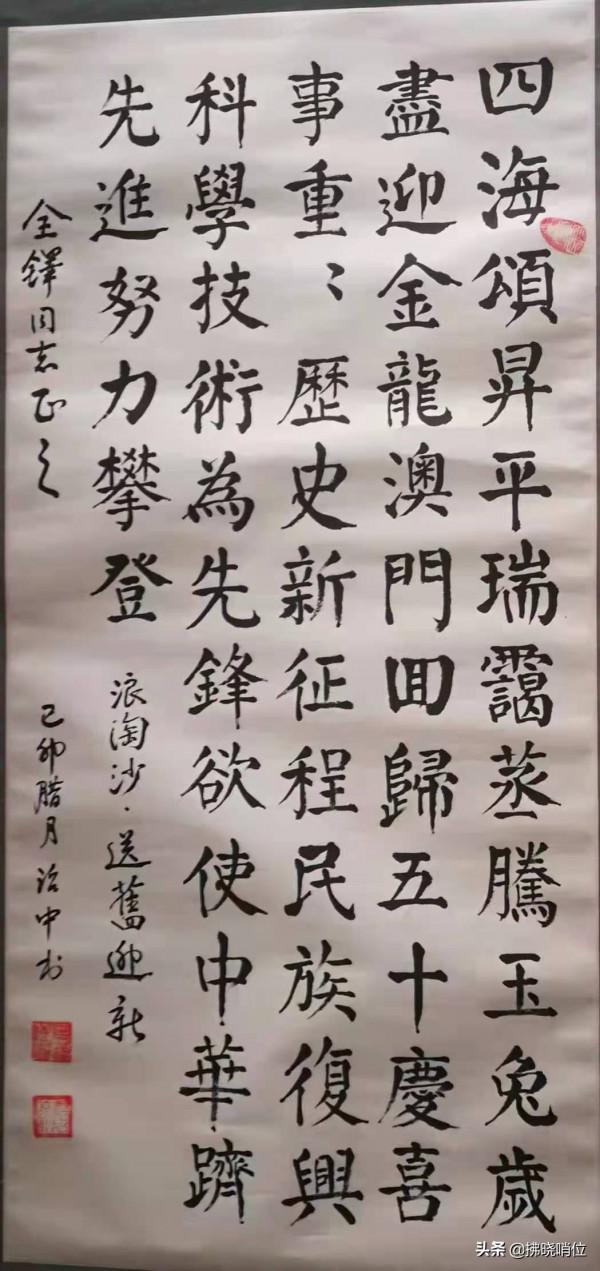 四海頌昇平瑞靄蒸騰玉兔歲
盡迎金龍澳門回歸五十慶喜
事重〻歷史新征程民族復興
科學技術為先鋒欲使中華躋
先進努力攀登
浪淘沙·送舊迎新
全鐸同志正之
己卯腊月治中书
头条 @拂晓哨位